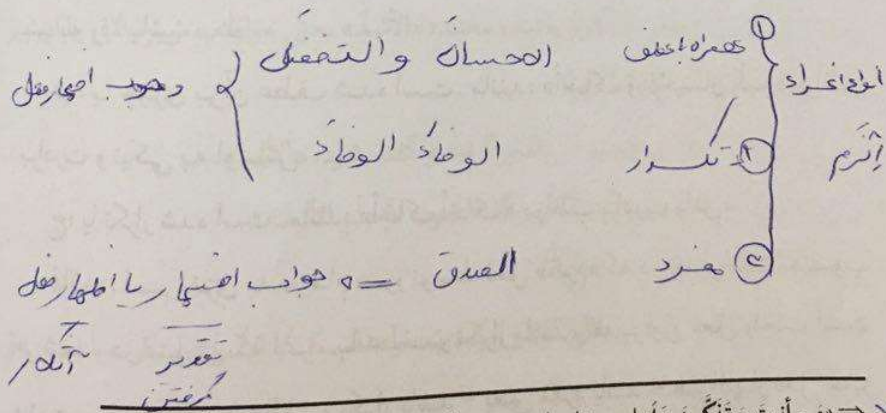 أنواع اغراء
اِلْزَم
① همراه با عطف الاحسانَ والتحملَ
② تکرار الوفاءَ الوفاءَ
} ⇐ وجوب اضمار فعل
③ مفرد الصدق ⇐ جواب اضمار یا اظهار فعل
تقدیر گرفتن
آشکار